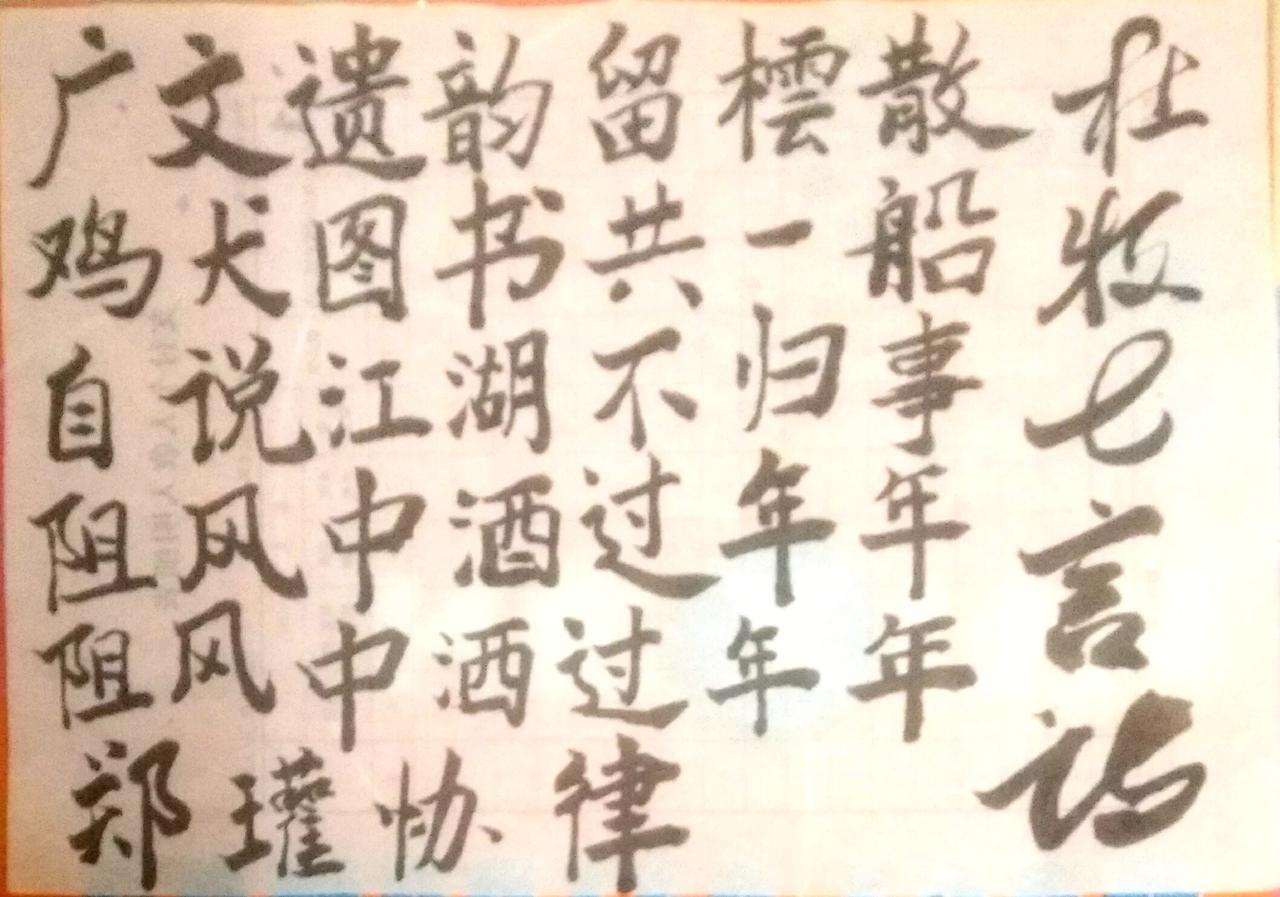 杜牧七言诗
广文遗韵留橒散
鸡犬图书共一船
自说江湖不归事
阻风中酒过年年
阻风中洒过年年
郑瓘协律